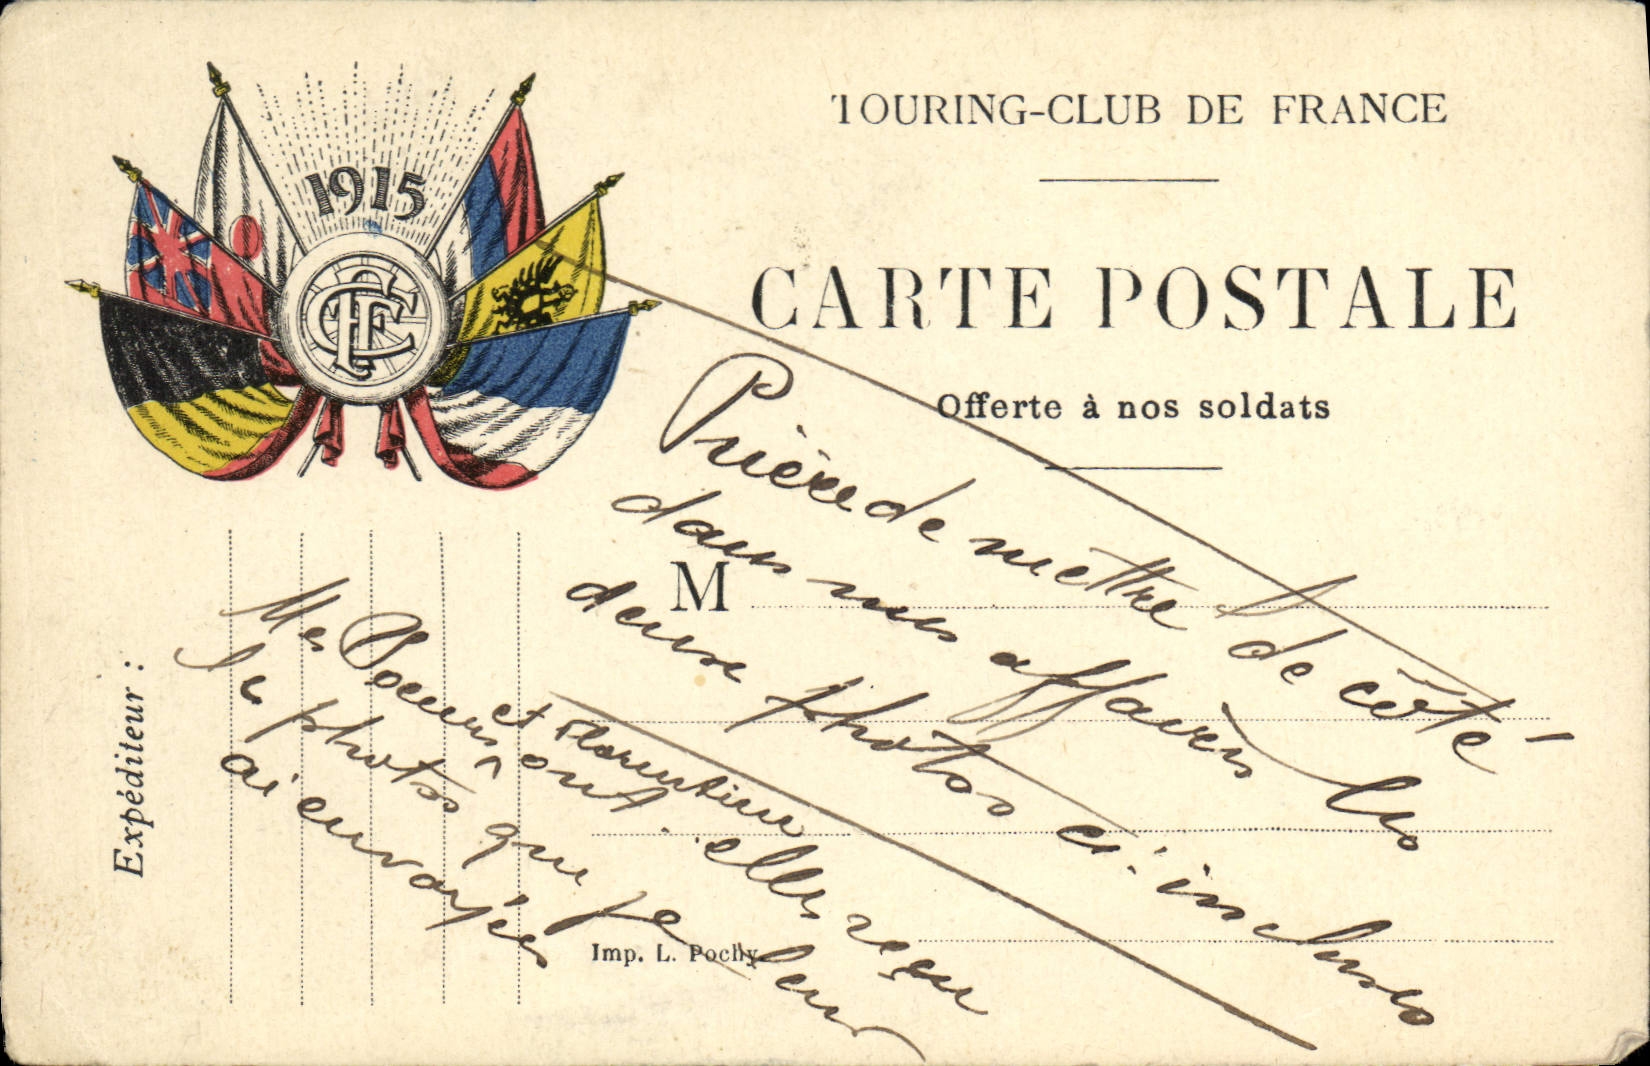 1915
TCF
TOURING-CLUB DE FRANCE
CARTE POSTALE
Offerte à nos soldats
M
Expéditeur :
Imp. L. Pochy.
Prière de mettre de côté
dans mes affaires les
deux photos ci-incluses
Mes Soeurs et Florentine
ont elles reçu
les photos que je leur
ai envoyées